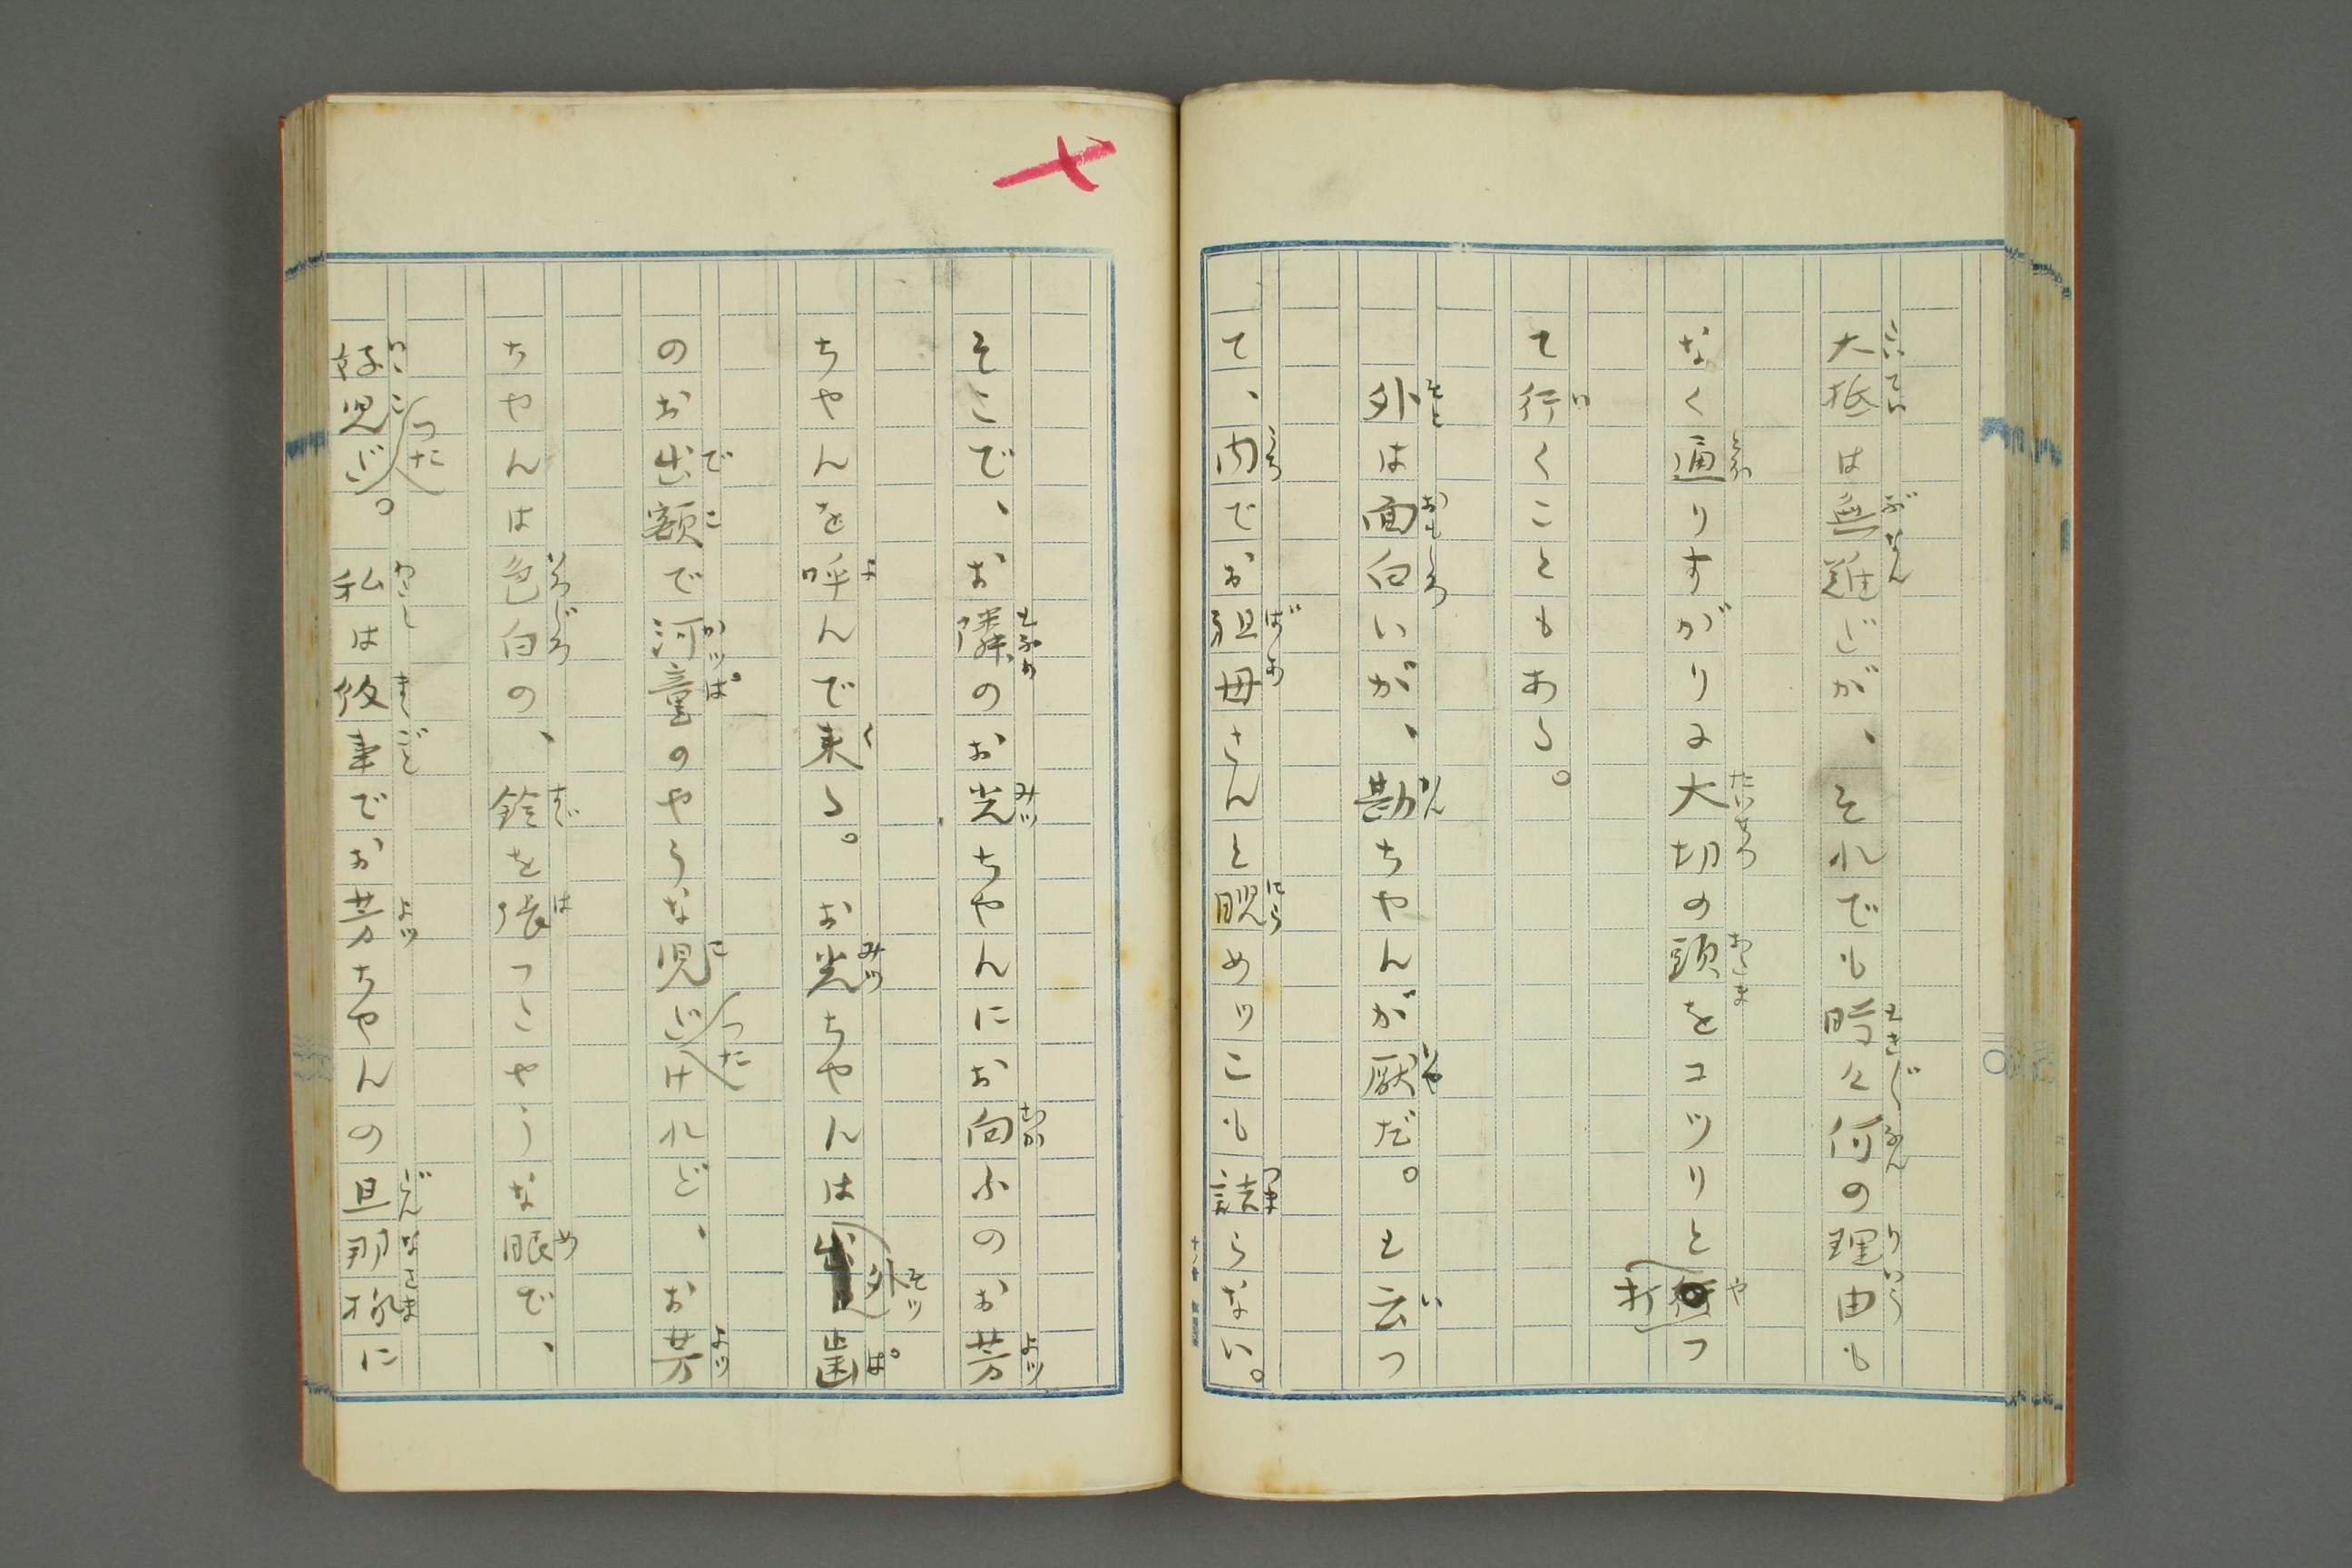 大抵は無難だが、それでも時々何の理由も
なく通りすがりに大切の頭をコツリと打つ
て行くこともある。
外は面白いが、勘ちやんが厭だ。と云つ
て、内でお祖母さんと睨めツこも詰らない。
そこで、お隣のお光ちやんにお向ふのお芳
ちやんを呼んで来る。お光ちやんは外歯
のお出額で河童のやうな児だつたけれど、お芳
ちやんは色白の、鈴を張つたやうな眼で、
好児だつた。私は飯事でお芳ちやんの旦那様に